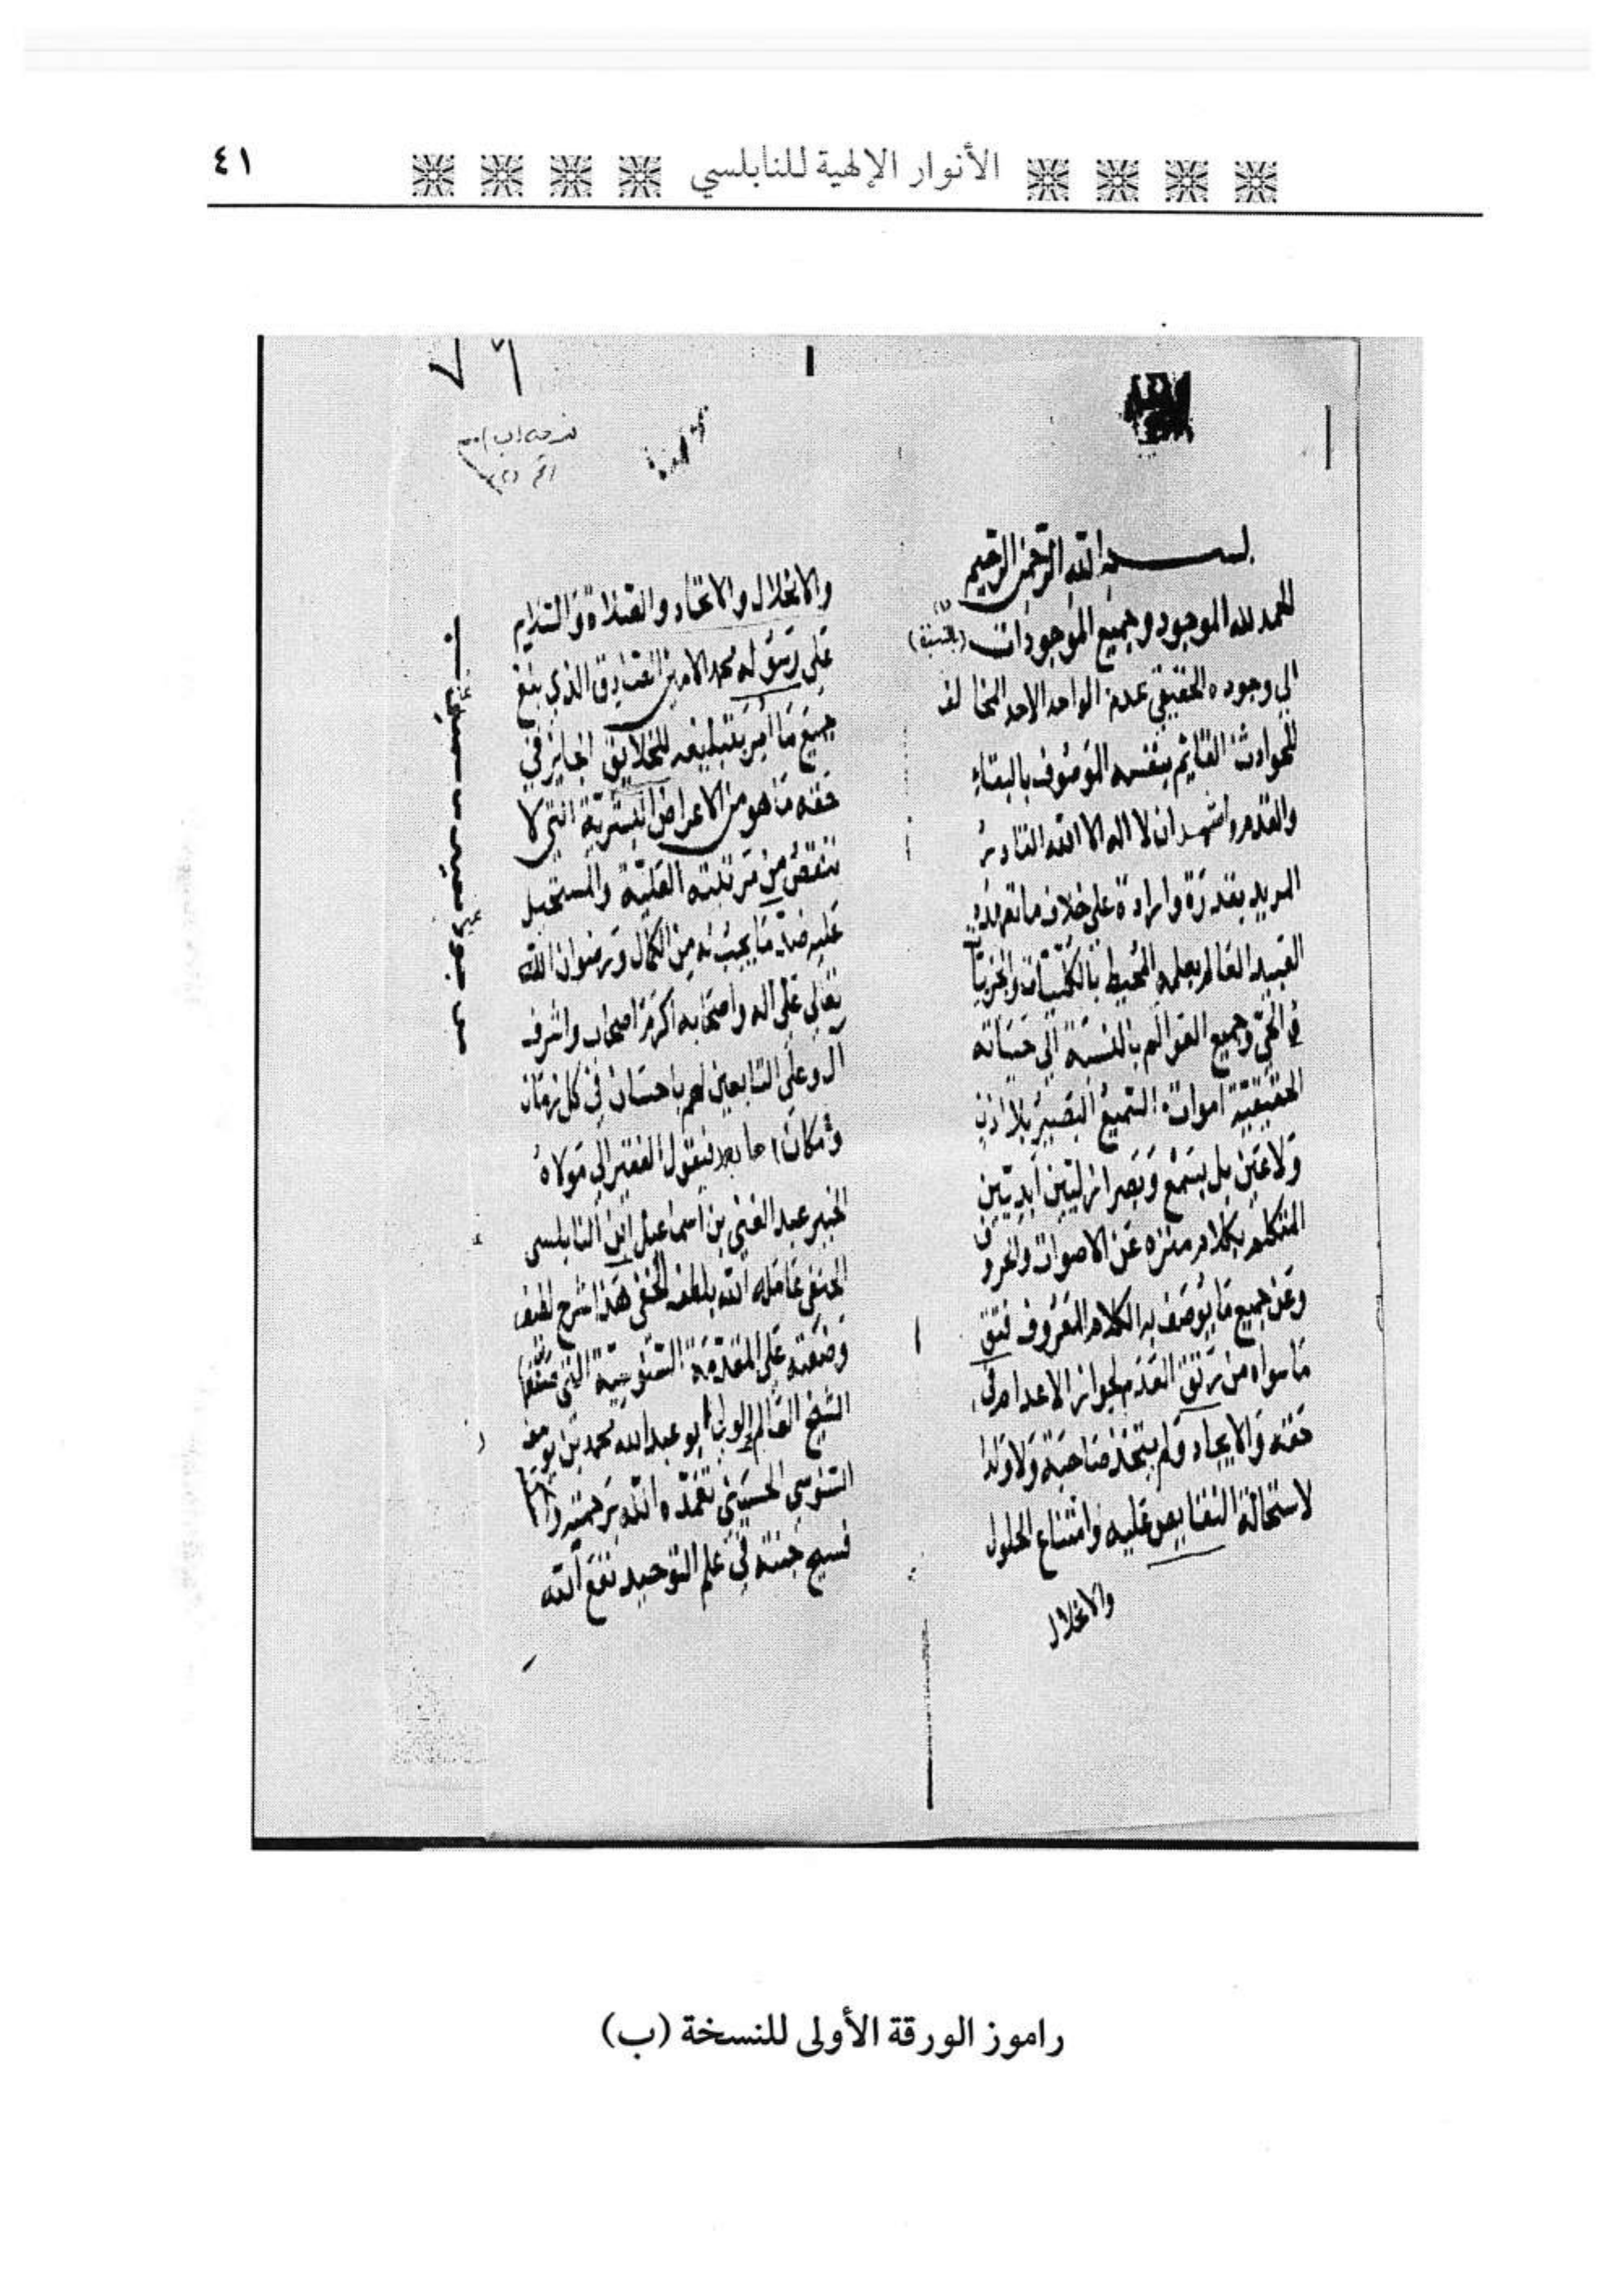 الأنوار الإلهية للنابلسي ٤١
بسم الله الرحمن الرحيم
الحمد لله الموجود وجميع الموجودات (بالنسبة)
الى وجوده الحقيقي عدم الواحد الاحد المخالف
للحوادث القائم بنفسه الموصوف بالبقاء
والقدم واشهد ان لا اله الا الله القادر
المريد بقدرة وارادة على خلاف ما تعهده
العبيد العالم بعلمه المحيط بالكليات والجزئيات
الحي وجميع العوالم بالنسبة الى حياته
الحقيقية اموات السميع البصير بلا اذن
ولا عين بل بسمع وبصر ازليين ابديين
المتكلم بكلام منزه عن الاصوات والحروف
وعن جميع ما يوصف به الكلام المعروف فتق
ما سواه من رتق العدم لجواز الاعدام في
حقه والايجاد ولم يتخذ صاحبة ولا ولدا
لاستحالة النقايص عليه وامتناع الحلول
والانحلال
والانحلال والاتحاد والصلاة والسلام
على رسوله محمد الامين الصادق الذي بلغ
جميع ما امر بتبليغه للخلايق الجايز في
حقه ما هو من الاعراض البشرية التي لا
تنقص من مرتبته العلية والمستحيل
عليه ضد ما يجب له من الكمال ورضوان الله
تعالى على اله واصحابه اكرم اصحاب واشرف
آل وعلى التابعين لهم باحسان في كل زمان
ومكان اما بعد فيقول الفقير الى مولاه
الخبير عبد الغني بن اسماعيل ابن النابلسي
الحنفي عامله الله بلطفه الخفي هذا شرح لطيف
وضعته على المقدمة السنوسية التي صنفها
الشيخ العالم الولي ابو عبد الله محمد بن يوسف
السنوسي الحسيني تغمده الله برحمته و
فسيح جنته في علم التوحيد نفع الله
راموز الورقة الأولى للنسخة (ب)